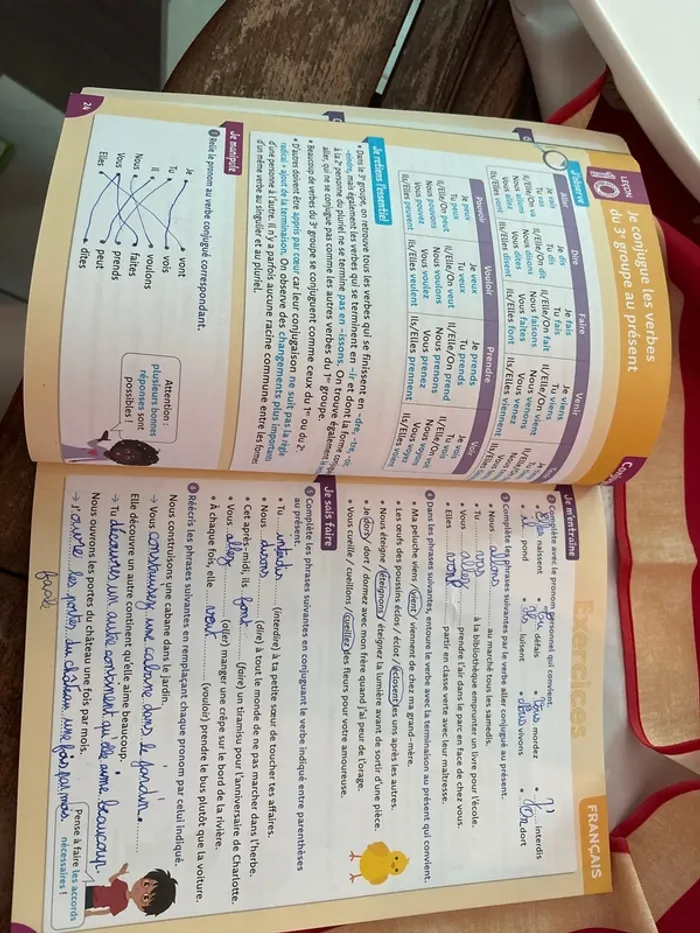 LEÇON
10
Je conjugue les verbes
du 3e groupe au présent
J'observe
Aller Dire Faire Venir
Je vais Je dis Je fais Je viens
Tu vas Tu dis Tu fais Tu viens
Il/Elle/On va Il/Elle/On dit Il/Elle/On fait Il/Elle/On vient
Nous allons Nous disons Nous faisons Nous venons
Vous allez Vous dites Vous faites Vous venez
Ils/Elles vont Ils/Elles disent Ils/Elles font Ils/Elles viennent
Pouvoir Vouloir Prendre Voir
Je peux Je veux Je prends Je vois
Tu peux Tu veux Tu prends Tu vois
Il/Elle/On peut Il/Elle/On veut Il/Elle/On prend Il/Elle/On voit
Nous pouvons Nous voulons Nous prenons Nous voyons
Vous pouvez Vous voulez Vous prenez Vous voyez
Ils/Elles peuvent Ils/Elles veulent Ils/Elles prennent Ils/Elles voient
Je retiens l'essentiel
• Dans le 3e groupe, on retrouve tous les verbes qui se finissent en -dre, -tre,
-eindre, mais également les verbes qui se terminent en -ir et dont la forme
à la 2e personne du pluriel ne se termine pas en -issons. On trouve également le
aller, qui ne se conjugue pas comme les autres verbes du 1er groupe.
• Beaucoup de verbes du 3e groupe se conjuguent comme ceux du 1er ou du 2e.
• D'autres doivent être appris par cœur car leur conjugaison ne suit pas la règle
radical + ajout de la terminaison. On observe des changements plus importants
d'une personne à l'autre. Il n'y a parfois aucune racine commune entre les formes
d'un même verbe au singulier et au pluriel.
Je manipule
1 Relie le pronom au verbe conjugué correspondant.
Je • • vont
Tu • • vois
Il • • voulons
Nous • • faites
Vous • • prends
Elles • • peut
• dites
Attention :
plusieurs bonnes
réponses sont
possibles !
24
Exercices
FRANÇAIS
Je m'entraîne
2 Complète avec le pronom personnel qui convient.
• Elles naissent • Tu défais • Vous mordez • J' interdis
• il pond • Ils luisent • Nous vivons • On dort
3 Complète les phrases suivantes par le verbe aller conjugué au présent.
• Nous allons au marché tous les samedis.
• Tu vas à la bibliothèque emprunter un livre pour l'école.
• Vous allez prendre l'air dans le parc en face de chez vous.
• Elles vont partir en classe verte avec leur maîtresse.
4 Dans les phrases suivantes, entoure le verbe avec la terminaison au présent qui convient.
• Ma peluche viens / vient / viennent de chez ma grand-mère.
• Les œufs des poussins éclos / éclot / éclosent les uns après les autres.
• Nous éteigne / éteignons / éteignez la lumière avant de sortir d'une pièce.
• Je dors / dort / dormez avec mon frère quand j'ai peur de l'orage.
• Vous cueille / cueillons / cueillez des fleurs pour votre amoureuse.
Je sais faire
5 Complète les phrases suivantes en conjuguant le verbe indiqué entre parenthèses
au présent.
• Tu interdis (interdire) à ta petite sœur de toucher tes affaires.
• Nous disons (dire) à tout le monde de ne pas marcher dans l'herbe.
• Cet après-midi, ils font (faire) un tiramisu pour l'anniversaire de Charlotte.
• Vous allez (aller) manger une crêpe sur le bord de la rivière.
• À chaque fois, elle veut (vouloir) prendre le bus plutôt que la voiture.
6 Réécris les phrases suivantes en remplaçant chaque pronom par celui indiqué.
Nous construisons une cabane dans le jardin.
→ Vous construisez une cabane dans le jardin.
Elle découvre un autre continent qu'elle aime beaucoup.
→ Tu découvres un autre continent qu'elle aime beaucoup.
Nous ouvrons les portes du château une fois par mois.
→ J'ouvre les portes du château une fois par mois.
Pense à faire les accords
nécessaires !